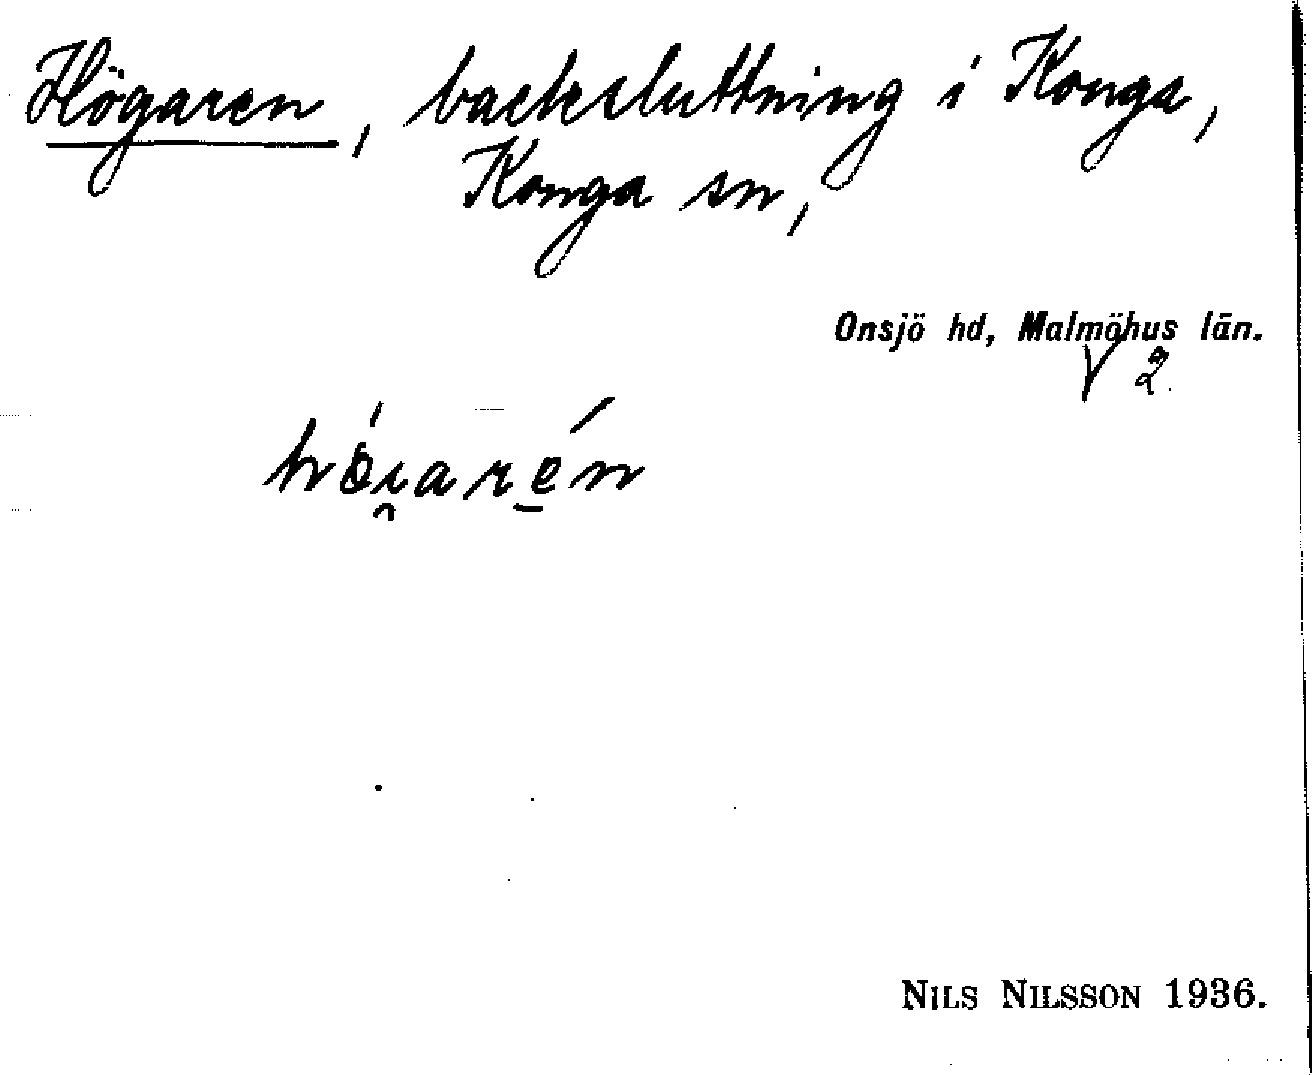 Högaren, backsluttning i Konga,
Konga sn,
Onsjö hd, Malmöhus län.
V 2.
NILS NILSSON 1936.